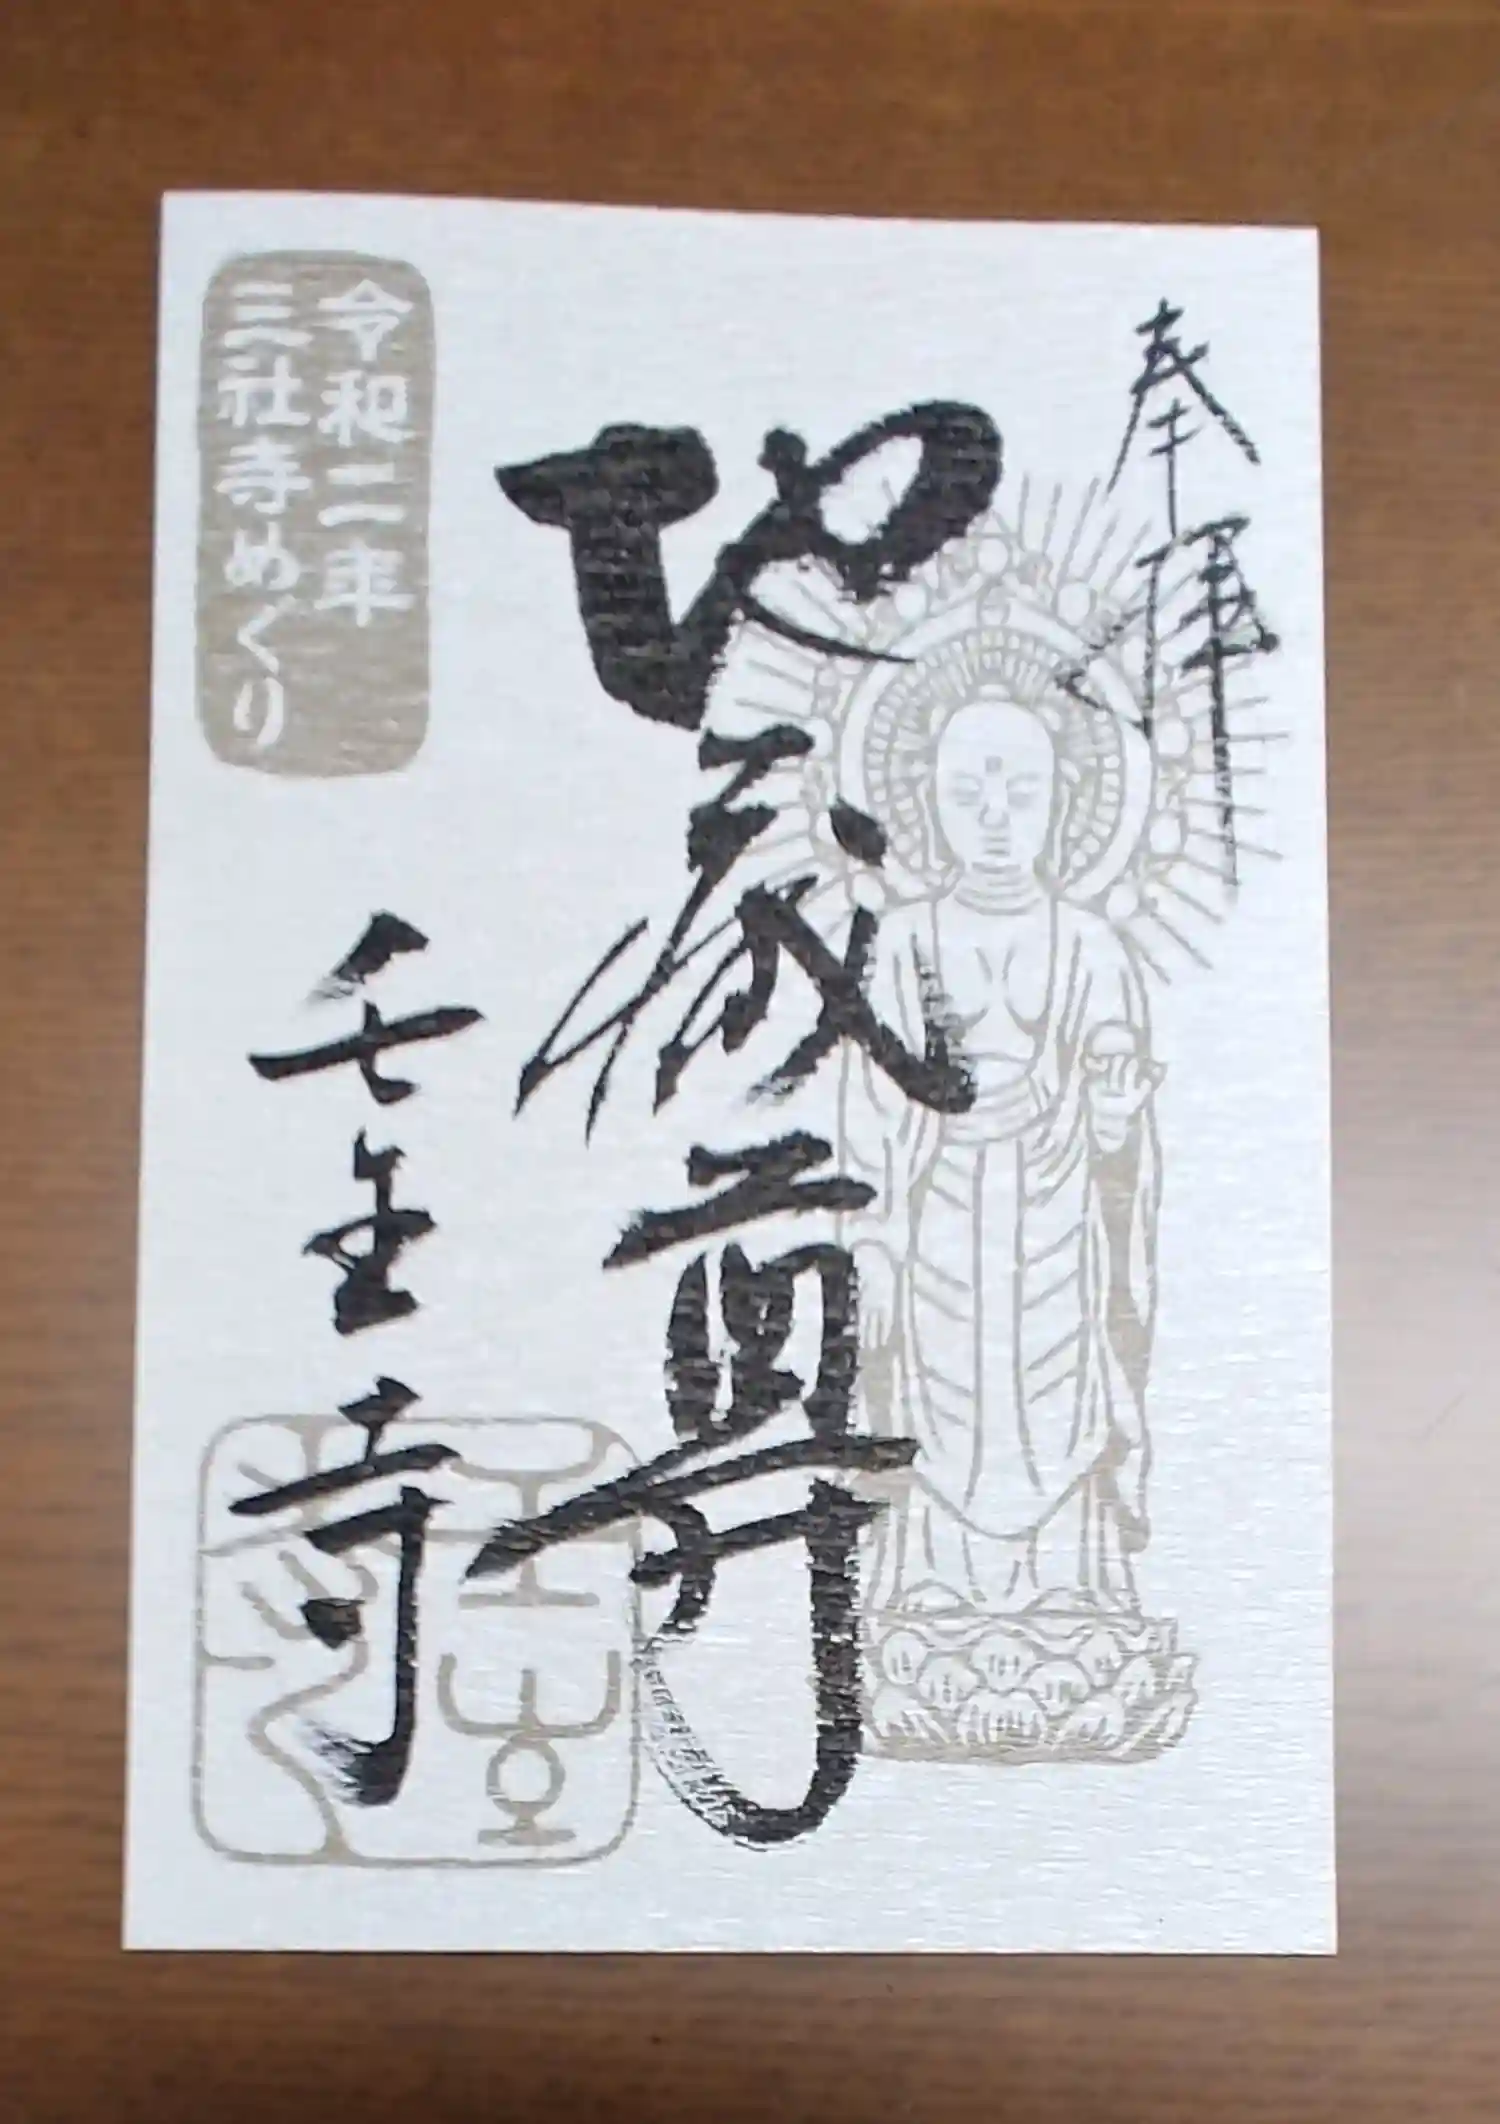 奉拝
地蔵尊
壬生寺
令和二年
三社寺めぐり